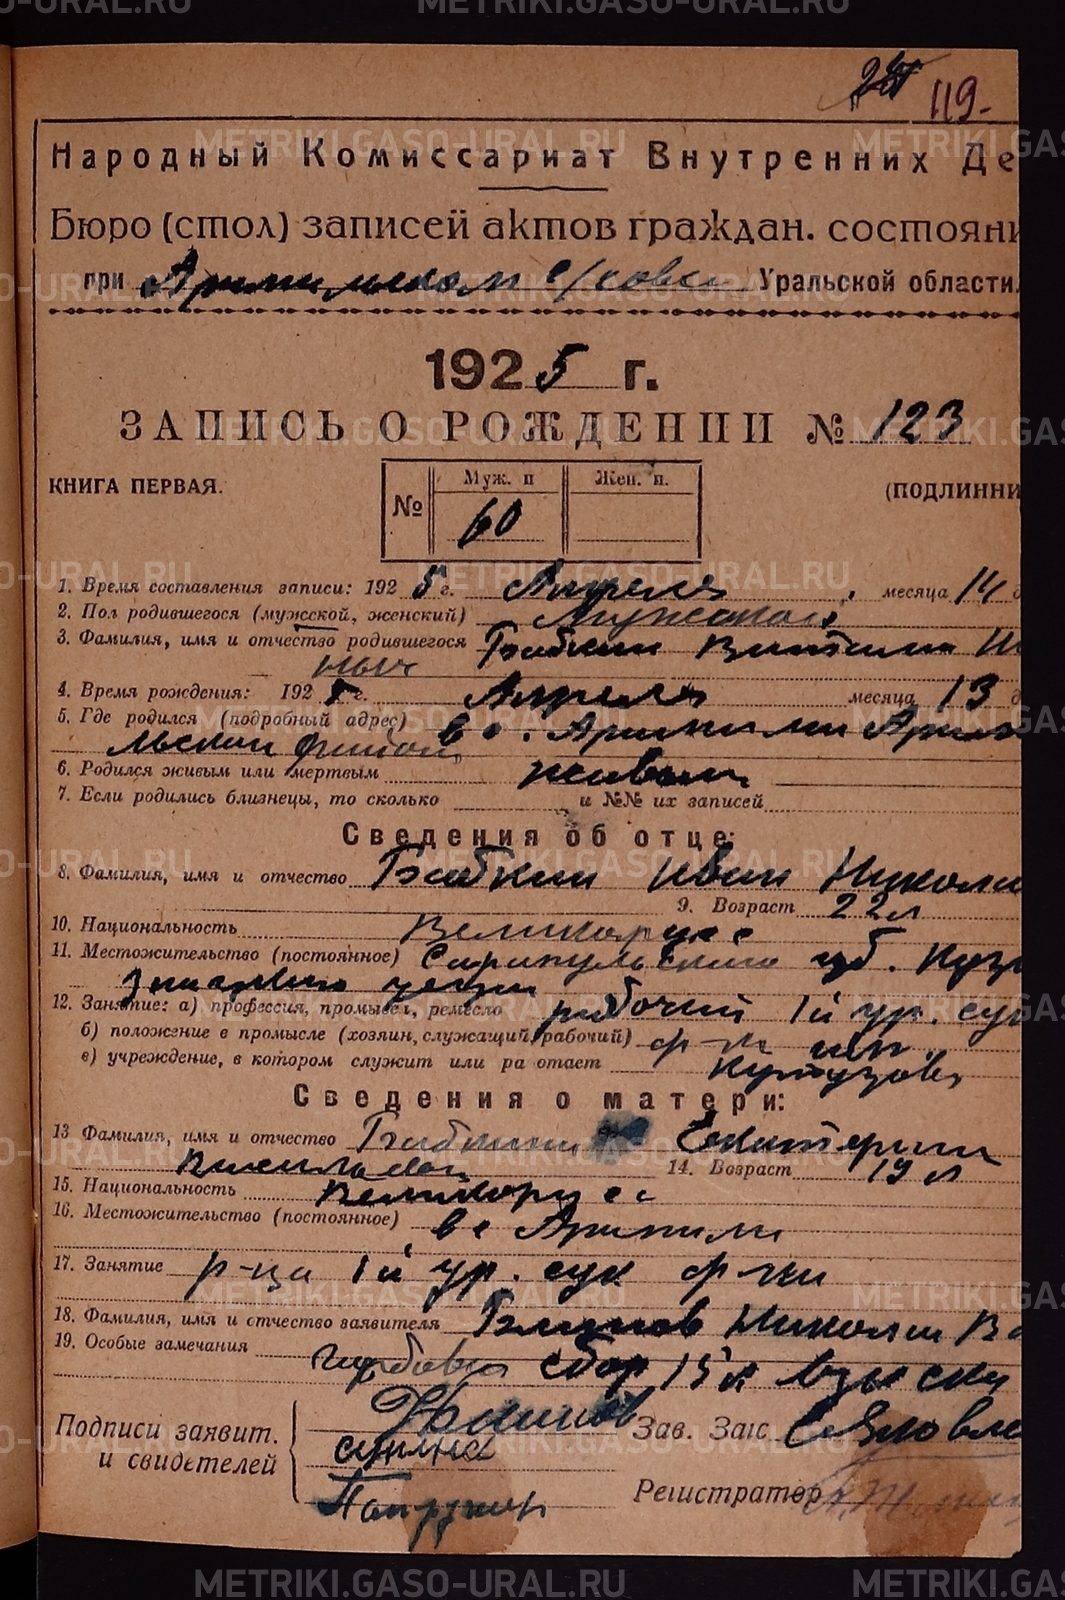 119.
Народный Комиссариат Внутренних Де
Бюро (стол) записей актов граждан. состояни
при Арамильском с/совет Уральской области.
1925 г.
ЗАПИСЬ О РОЖДЕНИИ № 123
КНИГА ПЕРВАЯ. (ПОДЛИННИ
№ Муж. п Жен. п.
60
1. Время составления записи: 1925 г. Апреля месяца 14 д
2. Пол родившегося (мужской, женский) Мужской
3. Фамилия, имя и отчество родившегося Бабкин Виталий И
4. Время рождения: 1925 г. Апреля месяца 13 д
5. Где родился (подробный адрес) в с. Арамили Арам
льской
6. Родился живым или мертвым живым
7. Если родились близнецы, то сколько и №№ их записей
Сведения об отце:
8. Фамилия, имя и отчество Бабкин Иван Никола
9. Возраст 22 л
10. Национальность Великорус
11. Местожительство (постоянное) Сарапульского
12. Занятие: а) профессия, промысел, ремесло рабочий 1й ур. сук
б) положение в промысле (хозяин, служащий, рабочий) ф-ки
в) учреждение, в котором служит или работает
Сведения о матери:
13 Фамилия, имя и отчество Бабкина Екатерина
14. Возраст 19 л
15. Национальность Великорус
16. Местожительство (постоянное) в с Арамили
17. Занятие р-ца 1й ур. сук ф-ки
18. Фамилия, имя и отчество заявителя Блинов Николай В
19. Особые замечания гербовый сбор 15 к взыскан
Подписи заявит.
и свидетелей
Блинов
Зав. Загс
Регистратор
METRIKI.GASO-URAL.RU